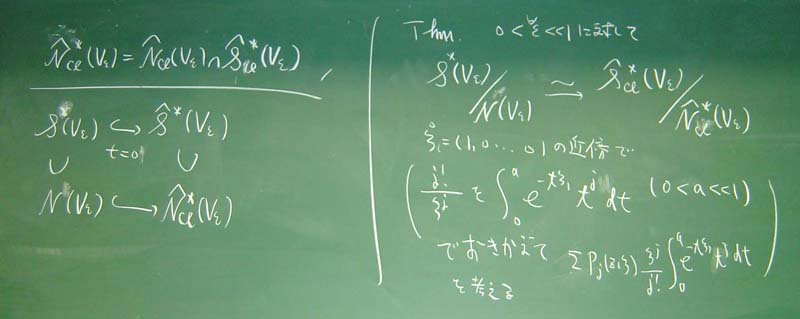 N̂_cl^*(V_ε) = N̂_cl(V_ε) ∩ Ŝ_cl^*(V_ε)
S^*(V_ε) ↪ Ŝ^*(V_ε)
t=0
∪ ∪
N(V_ε) ↪ N̂_cl^*(V_ε)
Thm. 0<∀ε<<1に対して
S^*(V_ε)/N(V_ε) ≃→ Ŝ_cl^*(V_ε)/N̂_cl^*(V_ε)
ξ=(1,0…0)の近傍で
( j!/ξ^j を ∫_0^a e^{-tξ_1} t^j dt (0<a<<1)
でおきかえて Σ P_j(z,ξ) ξ^j/j! ∫_0^a e^{-tξ_1} t^j dt )
を考える